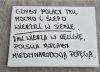 GDYBY POLACY TAK
MOCNO I ŚLEPO
WIERZYLI W SIEBIE,
JAK WIERZĄ W RELIGIĘ,
POLSKA BYŁABY
MIĘDZYNARODOWĄ POTĘGĄ.